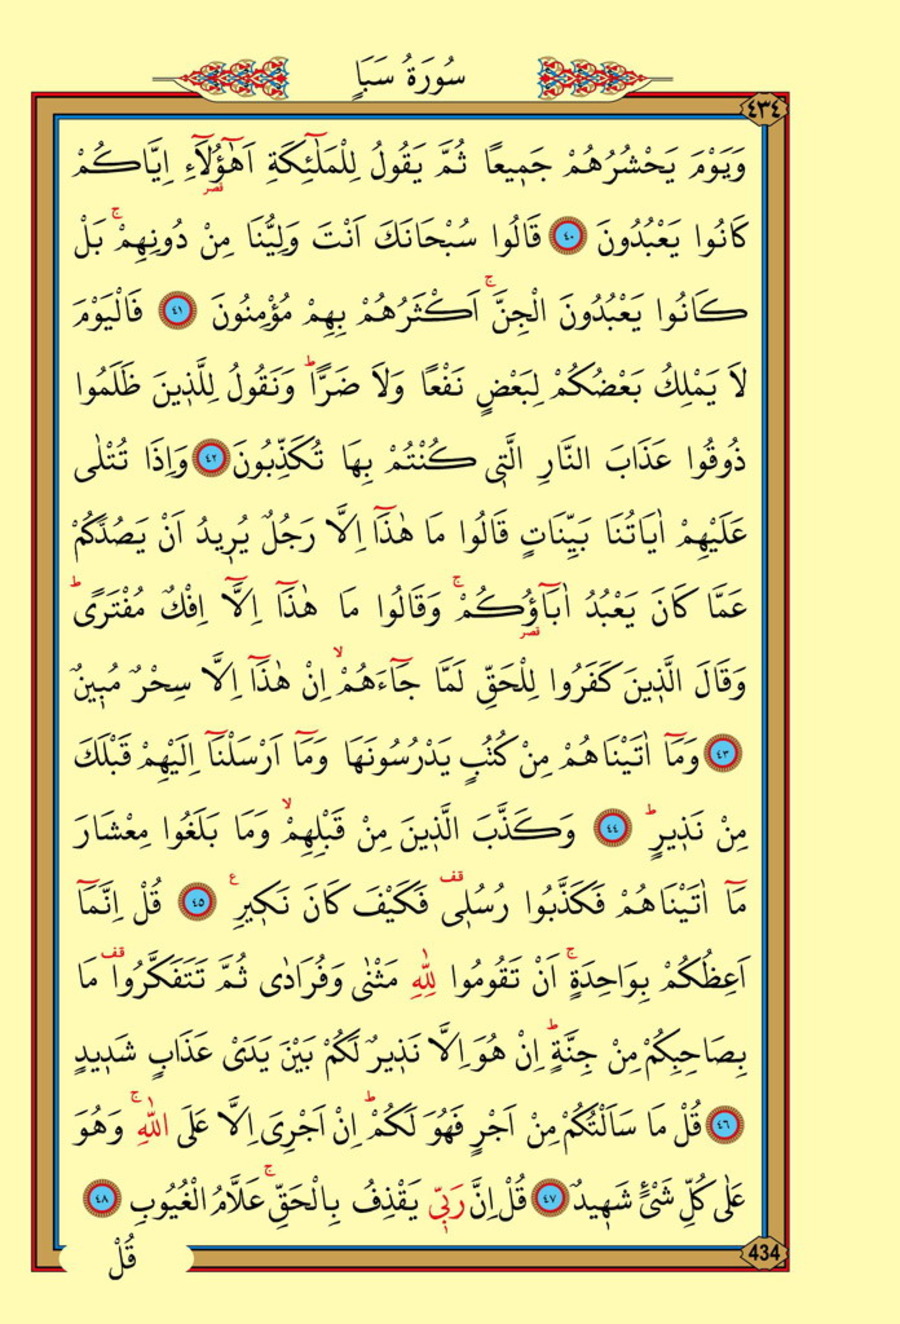 سُورَةُ سَبَأٍ
٤٣٤
وَيَوْمَ يَحْشُرُهُمْ جَمٖيعًا ثُمَّ يَقُولُ لِلْمَلٰٓئِكَةِ اَهٰٓؤُ۬لَٓاءِ اِيَّاكُمْ
قصر
كَانُوا يَعْبُدُونَ ٤٠ قَالُوا سُبْحَانَكَ اَنْتَ وَلِيُّنَا مِنْ دُونِهِمْۚ بَلْ
كَانُوا يَعْبُدُونَ الْجِنَّۚ اَكْثَرُهُمْ بِهِمْ مُؤْمِنُونَ ٤١ فَالْيَوْمَ
لَا يَمْلِكُ بَعْضُكُمْ لِبَعْضٍ نَفْعًا وَلَا ضَرًّاؕ وَنَقُولُ لِلَّذٖينَ ظَلَمُوا
ذُوقُوا عَذَابَ النَّارِ الَّتٖى كُنْتُمْ بِهَا تُكَذِّبُونَ ٤٢ وَاِذَا تُتْلٰى
عَلَيْهِمْ اٰيَاتُنَا بَيِّنَاتٍ قَالُوا مَا هٰذَٓا اِلَّا رَجُلٌ يُرٖيدُ اَنْ يَصُدَّكُمْ
عَمَّا كَانَ يَعْبُدُ اٰبَٓاؤُ۬كُمْۚ وَقَالُوا مَا هٰذَٓا اِلَّٓا اِفْكٌ مُفْتَرًىؕ
قصر
وَقَالَ الَّذٖينَ كَفَرُوا لِلْحَقِّ لَمَّا جَٓاءَهُمْۙ اِنْ هٰذَٓا اِلَّا سِحْرٌ مُبٖينٌ
٤٣ وَمَٓا اٰتَيْنَاهُمْ مِنْ كُتُبٍ يَدْرُسُونَهَا وَمَٓا اَرْسَلْنَٓا اِلَيْهِمْ قَبْلَكَ
مِنْ نَذٖيرٍؕ ٤٤ وَكَذَّبَ الَّذٖينَ مِنْ قَبْلِهِمْۙ وَمَا بَلَغُوا مِعْشَارَ
مَٓا اٰتَيْنَاهُمْ فَكَذَّبُوا رُسُلٖى قف فَكَيْفَ كَانَ نَكٖيرِ ع ٤٥ قُلْ اِنَّمَٓا
اَعِظُكُمْ بِوَاحِدَةٍۚ اَنْ تَقُومُوا لِلّٰهِ مَثْنٰى وَفُرَادٰى ثُمَّ تَتَفَكَّرُوا قف مَا
بِصَاحِبِكُمْ مِنْ جِنَّةٍؕ اِنْ هُوَ اِلَّا نَذٖيرٌ لَكُمْ بَيْنَ يَدَىْ عَذَابٍ شَدٖيدٍ
٤٦ قُلْ مَا سَاَلْتُكُمْ مِنْ اَجْرٍ فَهُوَ لَكُمْؕ اِنْ اَجْرِىَ اِلَّا عَلَى اللّٰهِۚ وَهُوَ
عَلٰى كُلِّ شَیْءٍ شَهٖيدٌ ٤٧ قُلْ اِنَّ رَبّٖى يَقْذِفُ بِالْحَقِّۚ عَلَّامُ الْغُيُوبِ ٤٨
قُلْ
434